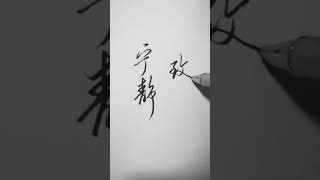 宁静
致